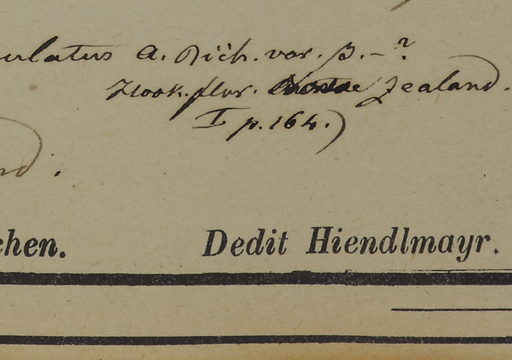 ulatus A. Rich. var. β. – ?
Hook. flor. Zealand.
I p. 164.)
nd.
chen. Dedit Hiendlmayr.